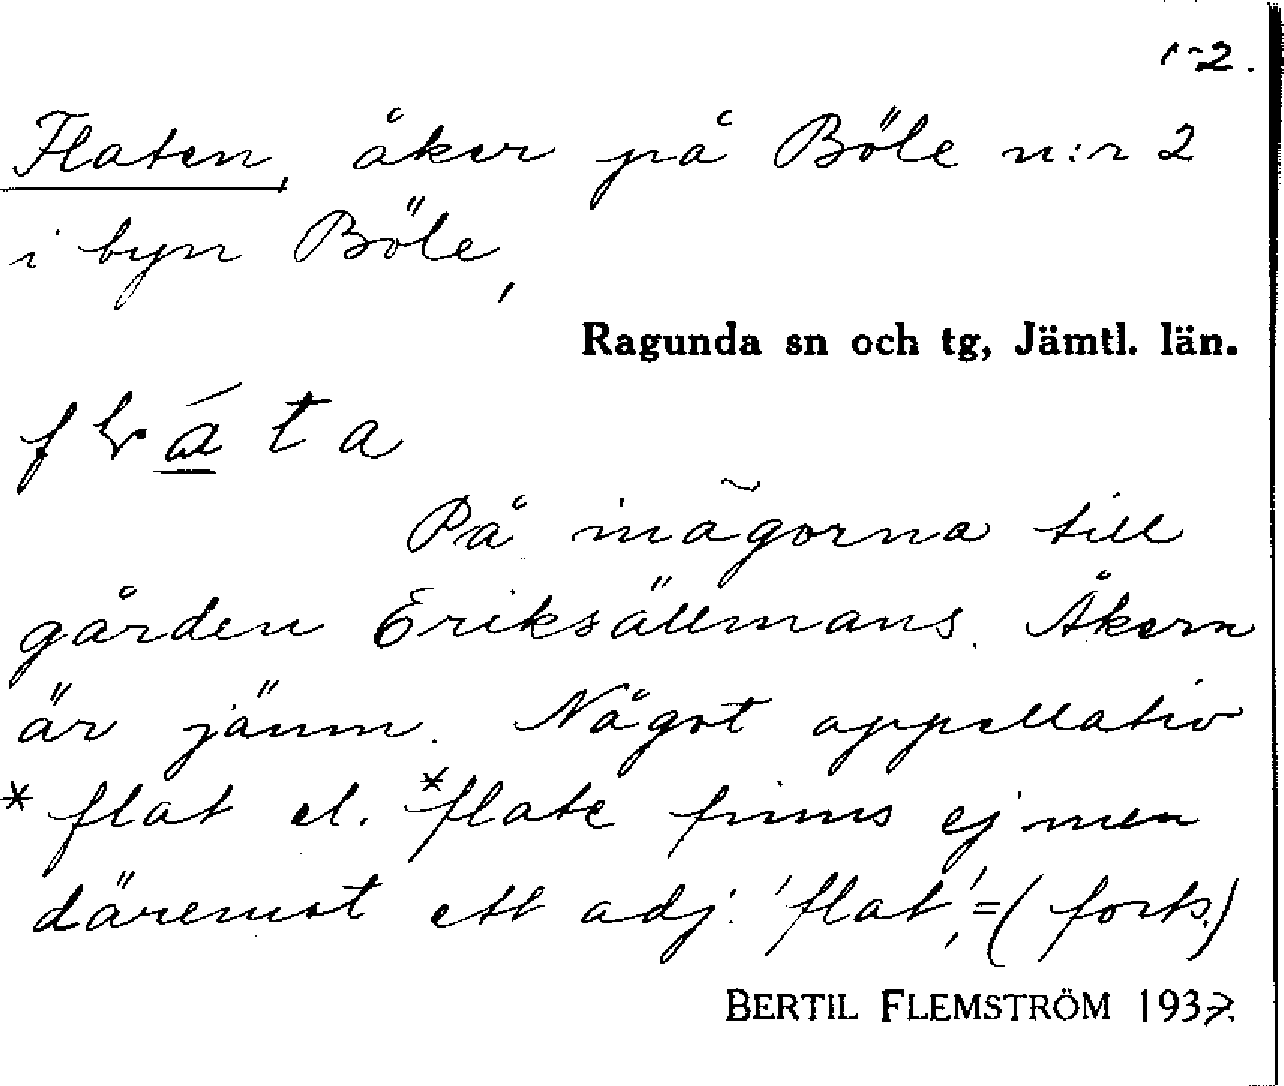 1-2.
Flaten, åker på Böle n:r 2
i byn Böle,
Ragunda sn och tg, Jämtl. län.
På inägorna till
gården Eriksällmans. Åkern
är jämn. Något appellativ
*flat el. *flate finns ej men
däremot ett adj. 'flat', =(forts.)
BERTIL FLEMSTRÖM 1937.